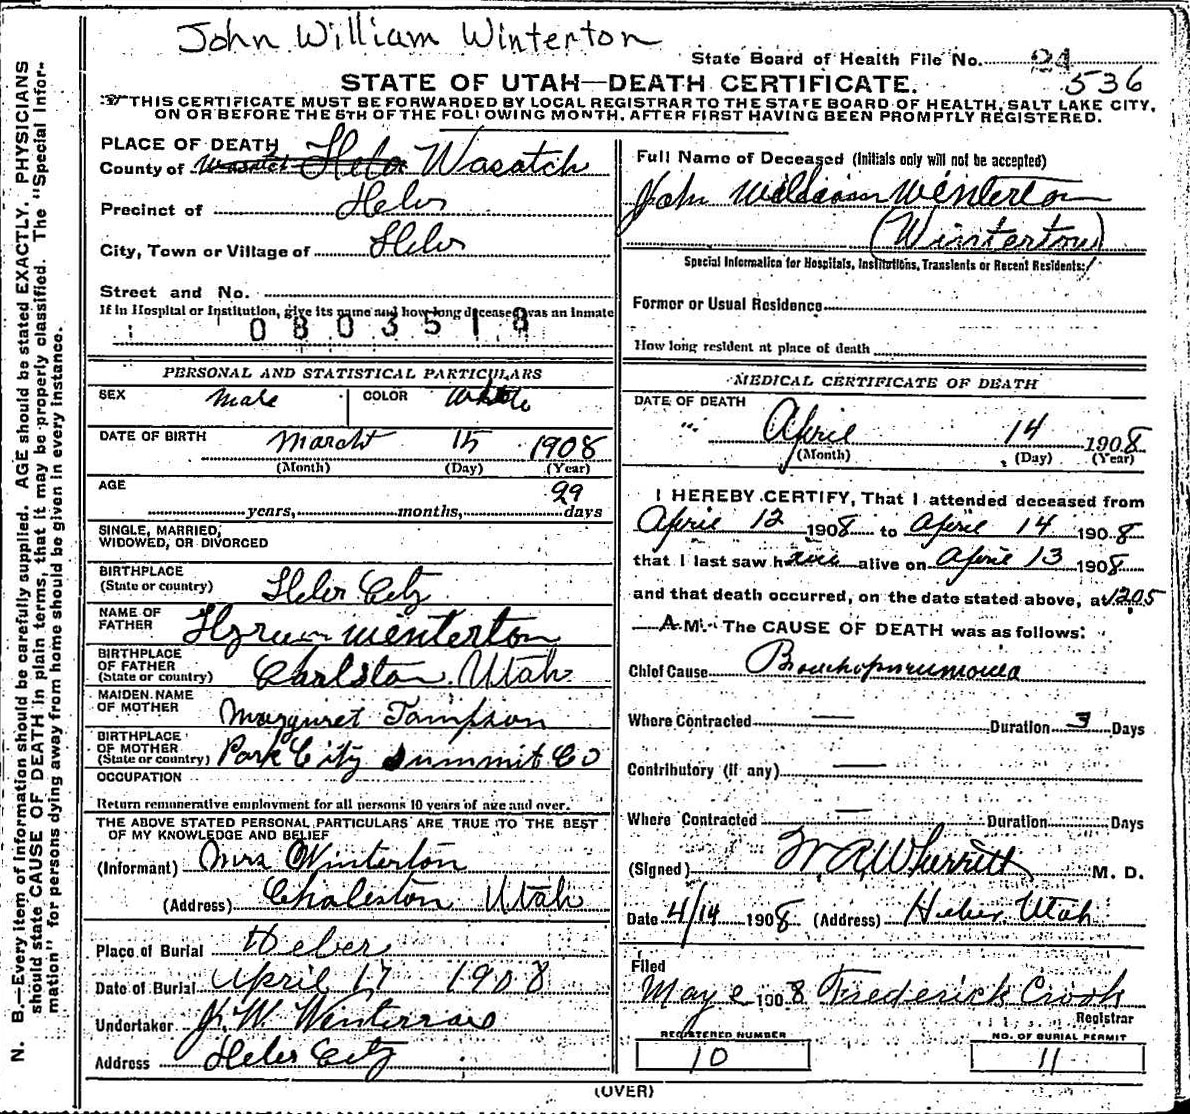 John William Winterton
State Board of Health File No. 24
536
STATE OF UTAH—DEATH CERTIFICATE.
THIS CERTIFICATE MUST BE FORWARDED BY LOCAL REGISTRAR TO THE STATE BOARD OF HEALTH, SALT LAKE CITY,
ON OR BEFORE THE 5TH OF THE FOLLOWING MONTH, AFTER FIRST HAVING BEEN PROMPTLY REGISTERED.
N. B.—Every item of information should be carefully supplied. AGE should be stated EXACTLY. PHYSICIANS
should state CAUSE OF DEATH in plain terms, that it may be properly classified. The "Special Infor-
mation" for persons dying away from home should be given in every instance.
PLACE OF DEATH
County of Wasatch Heber Wasatch
Precinct of Heber
City, Town or Village of Heber
Street and No.
If in Hospital or Institution, give its name and how long deceased was an Inmate
0803518
PERSONAL AND STATISTICAL PARTICULARS
SEX Male COLOR White
DATE OF BIRTH March 15 1908
(Month) (Day) (Year)
AGE 29
years, months, days
SINGLE, MARRIED,
WIDOWED, OR DIVORCED
BIRTHPLACE
(State or country) Heber City
NAME OF
FATHER Hyrum Winterton
BIRTHPLACE
OF FATHER
(State or country) Charlston Utah
MAIDEN NAME
OF MOTHER Marguret Tompson
BIRTHPLACE
OF MOTHER
(State or country) Park City Summit Co
OCCUPATION
Return remunerative employment for all persons 10 years of age and over.
THE ABOVE STATED PERSONAL PARTICULARS ARE TRUE TO THE BEST
OF MY KNOWLEDGE AND BELIEF
(Informant) Mrs Winterton
(Address) Charleston Utah
Place of Burial Heber
Date of Burial April 17 1908
Undertaker J. W. 
Address Heber City
Full Name of Deceased (Initials only will not be accepted)
John William Winterton
(Winterton)
Special Information for Hospitals, Institutions, Transients or Recent Residents:
Former or Usual Residence
How long resident at place of death
MEDICAL CERTIFICATE OF DEATH
DATE OF DEATH
April 14 1908
(Month) (Day) (Year)
I HEREBY CERTIFY, That I attended deceased from
April 12 1908 to April 14 1908
that I last saw him alive on April 13 1908
and that death occurred, on the date stated above, at 12.05
A M. The CAUSE OF DEATH was as follows:
Chief Cause Bronchopneumonia
Where Contracted — Duration 3 Days
Contributory (if any) —
Where Contracted — Duration Days
(Signed) W. R. Wherritt M. D.
Date 4/14 1908 (Address) Heber, Utah
Filed
May 2 1908 Frederick Crook
Registrar
REGISTERED NUMBER
10
NO. OF BURIAL PERMIT
11
(OVER)